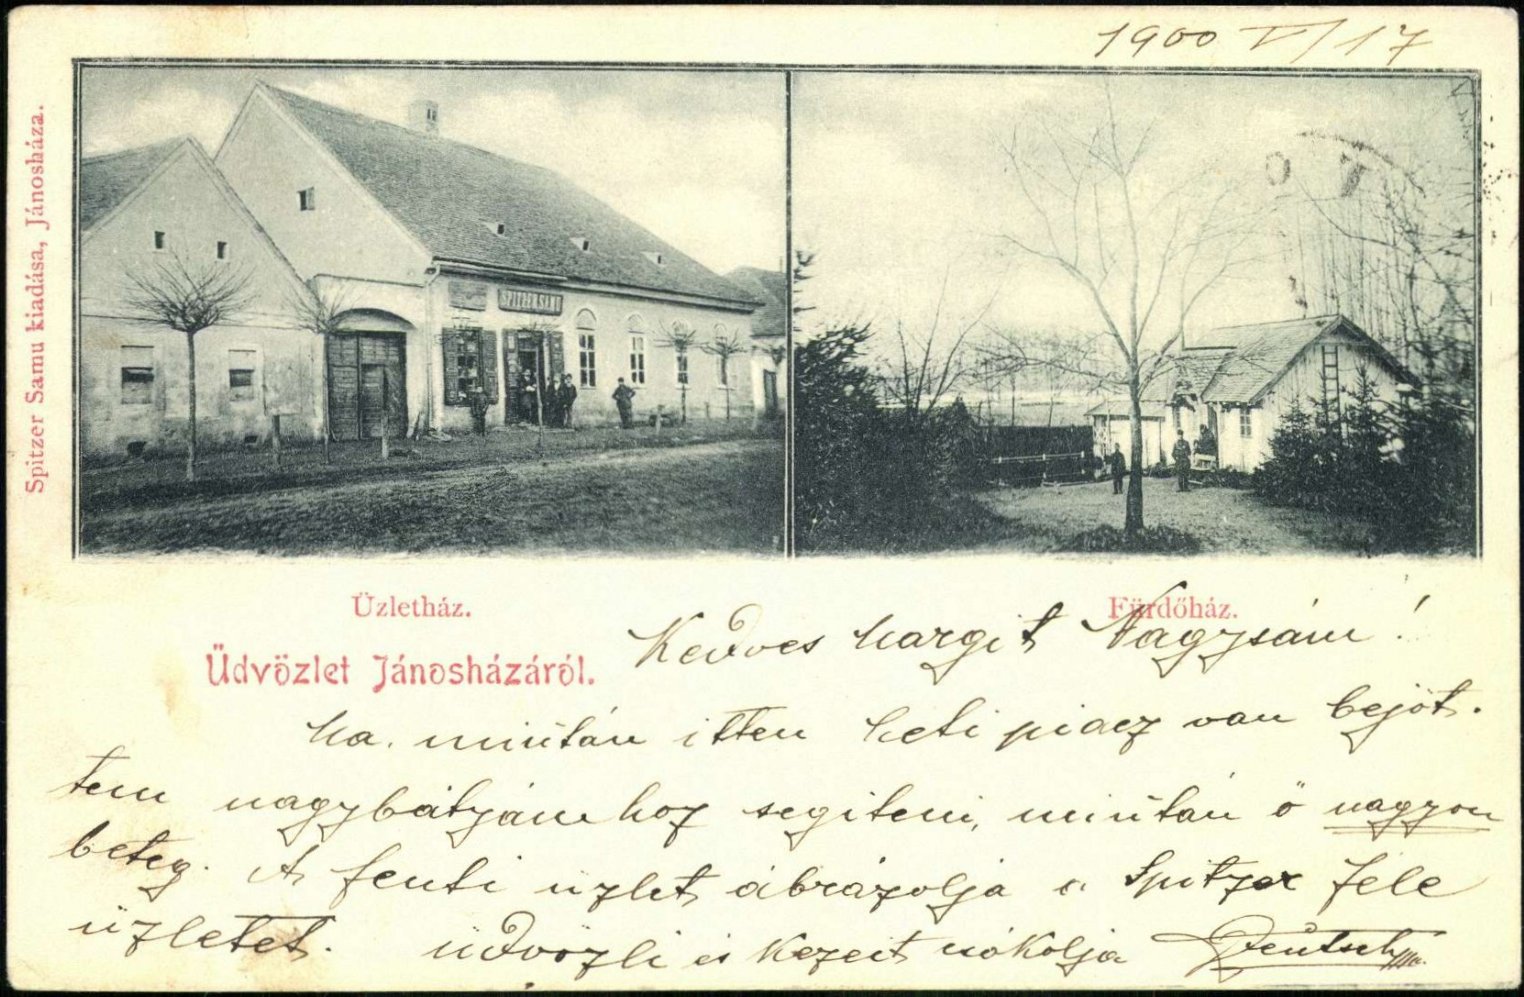 1900 V/17
Spitzer Samu kiadása, Jánosháza.
SPITZER SAMU
Üzletház.
Fürdőház.
Üdvözlet Jánosházáról.
Kedves Margit Nagysám!
Ma, miután itten heti piacz van bejöt-
tem nagybátyám hoz segiteni, miután ő nagyon
beteg. A fenti üzlet ábrázolja a Spitzer féle
üzletet. üdvözli és kezeit csókolja Deutsch